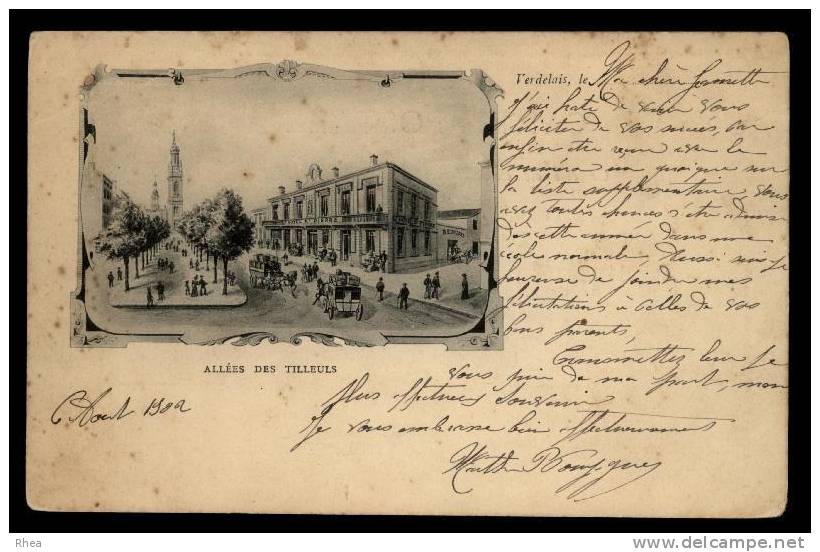 Verdelais, le Ma chère
J'ai hâte de venir vous
féliciter de vos succès, car
enfin être reçue avec le
numéro un quoique sur
la liste supplémentaire, vous
avez toutes chances d'être admise
dès cette année dans une
école normale, Aussi suis-je
heureuse de joindre mes
félicitations à celles de vos
bons parents,
Transmettez leur je
vous prie de ma part, mon
plus affectueux souvenir
Je vous embrasse bien affectueusement
HOTEL ST PIERRE
ALLÉES DES TILLEULS
6 Aout 1902
Rhea
www.delcampe.net